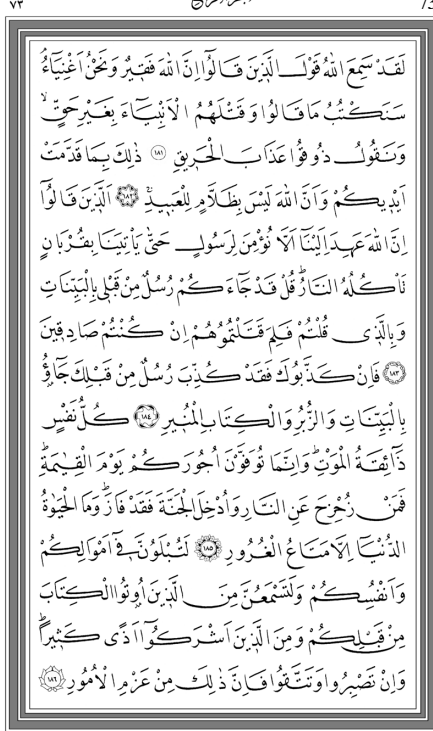 ٧٣
لَقَدْ سَمِعَ اللّٰهُ قَوْلَ الَّذ۪ينَ قَالُٓوا اِنَّ اللّٰهَ فَق۪يرٌ وَنَحْنُ اَغْنِيَٓاءُۢ
سَنَكْتُبُ مَا قَالُوا وَقَتْلَهُمُ الْاَنْبِيَٓاءَ بِغَيْرِ حَقٍّۙ
وَنَقُولُ ذُوقُوا عَذَابَ الْحَر۪يقِ ﴿١٨١﴾ ذٰلِكَ بِمَا قَدَّمَتْ
اَيْد۪يكُمْ وَاَنَّ اللّٰهَ لَيْسَ بِظَلَّامٍ لِلْعَب۪يدِۚ ﴿١٨٢﴾ اَلَّذ۪ينَ قَالُٓوا
اِنَّ اللّٰهَ عَهِدَ اِلَيْنَٓا اَلَّا نُؤْمِنَ لِرَسُولٍ حَتّٰى يَأْتِيَنَا بِقُرْبَانٍ
تَأْكُلُهُ النَّارُۜ قُلْ قَدْ جَٓاءَكُمْ رُسُلٌ مِنْ قَبْل۪ي بِالْبَيِّنَاتِ
وَبِالَّذ۪ي قُلْتُمْ فَلِمَ قَتَلْتُمُوهُمْ اِنْ كُنْتُمْ صَادِق۪ينَ
﴿١٨٣﴾ فَاِنْ كَذَّبُوكَ فَقَدْ كُذِّبَ رُسُلٌ مِنْ قَبْلِكَ جَٓاؤُ۫
بِالْبَيِّنَاتِ وَالزُّبُرِ وَالْكِتَابِ الْمُن۪يرِ ﴿١٨٤﴾ كُلُّ نَفْسٍ
ذَٓائِقَةُ الْمَوْتِۜ وَاِنَّمَا تُوَفَّوْنَ اُجُورَكُمْ يَوْمَ الْقِيٰمَةِۜ
فَمَنْ زُحْزِحَ عَنِ النَّارِ وَاُدْخِلَ الْجَنَّةَ فَقَدْ فَازَۜ وَمَا الْحَيٰوةُ
الدُّنْيَٓا اِلَّا مَتَاعُ الْغُرُورِ ﴿١٨٥﴾ لَتُبْلَوُنَّ ف۪ٓي اَمْوَالِكُمْ
وَاَنْفُسِكُمْ وَلَتَسْمَعُنَّ مِنَ الَّذ۪ينَ اُو۫تُوا الْكِتَابَ
مِنْ قَبْلِكُمْ وَمِنَ الَّذ۪ينَ اَشْرَكُٓوا اَذًى كَث۪يرًاۜ
وَاِنْ تَصْبِرُوا وَتَتَّقُوا فَاِنَّ ذٰلِكَ مِنْ عَزْمِ الْاُمُورِ ﴿١٨٦﴾